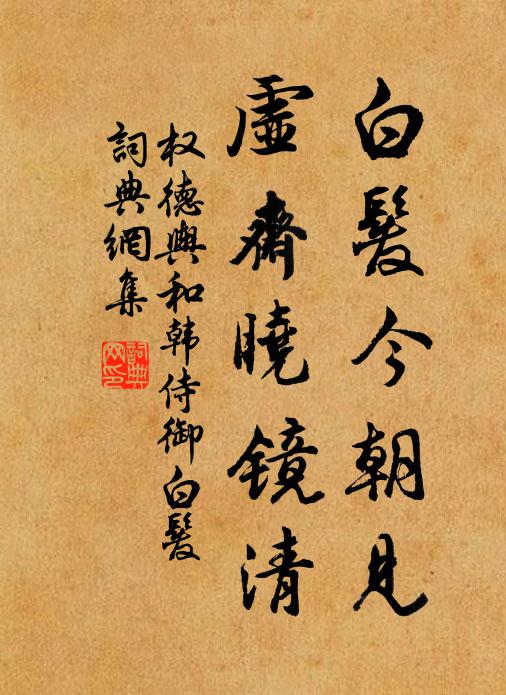 白髮今朝見
虛齋曉鏡清
权德輿和韩侍御白髮
詞典網集
詞典
网印